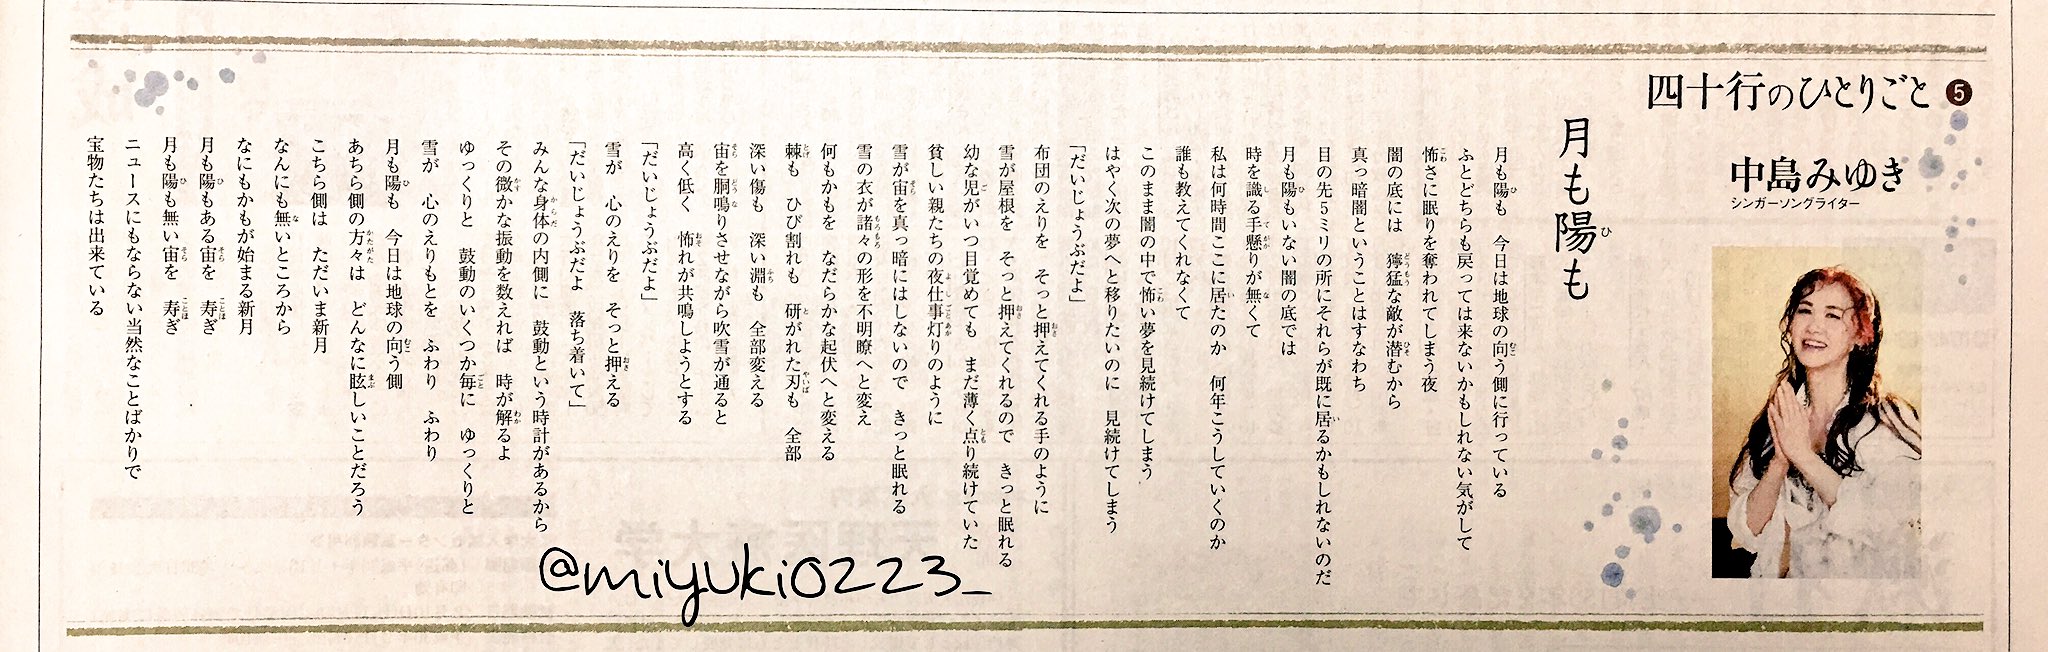 四十行のひとりごと ❺
中島みゆき
シンガーソングライター
月も陽も
月も陽も　今日は地球の向う側に行っている
ふとどちらも戻っては来ないかもしれない気がして
怖さに眠りを奪われてしまう夜
闇の底には　獰猛な敵が潜むから
真っ暗闇ということはすなわち
目の先5ミリの所にそれらが既に居るかもしれないのだ
月も陽もいない闇の底では
時を識る手懸りが無くて
私は何時間ここに居たのか　何年こうしていくのか
誰も教えてくれなくて
このまま闇の中で怖い夢を見続けてしまう
はやく次の夢へと移りたいのに　見続けてしまう
「だいじょうぶだよ」
布団のえりを　そっと押えてくれる手のように
雪が屋根を　そっと押えてくれるので　きっと眠れる
幼な児がいつ目覚めても　まだ薄く点り続けていた
貧しい親たちの夜仕事灯りのように
雪が宙を真っ暗にはしないので　きっと眠れる
雪の衣が諸々の形を不明瞭へと変え
何もかもを　なだらかな起伏へと変える
棘も　ひび割れも　研がれた刃も　全部
深い傷も　深い淵も　全部変える
宙を胴鳴りさせながら吹雪が通ると
高く低く　怖れが共鳴しようとする
「だいじょうぶだよ」
雪が　心のえりを　そっと押える
「だいじょうぶだよ　落ち着いて」
みんな身体の内側に　鼓動という時計があるから
その微かな振動を数えれば　時が解るよ
ゆっくりと　鼓動のいくつか毎に　ゆっくりと
雪が　心のえりもとを　ふわり　ふわり
月も陽も　今日は地球の向う側
あちら側の方々は　どんなに眩しいことだろう
こちら側は　ただいま新月
なんにも無いところから
なにもかもが始まる新月
月も陽もある宙を　寿ぎ
月も陽も無い宙を　寿ぎ
ニュースにもならない当然なことばかりで
宝物たちは出来ている
@miyuki0223_